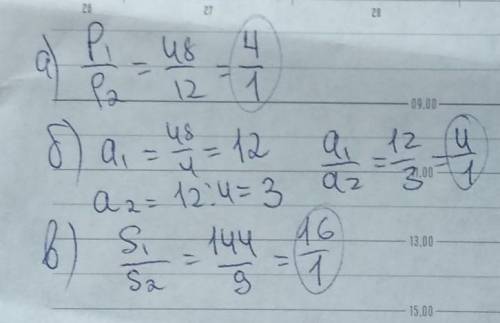 26 27 28
а) P₁/P₂ = 48/12 = 4/1
09.00
б) a₁ = 48/4 = 12 a₁/a₂ = 12/3 = 4/1
a₂ = 12:4 = 3
в) S₁/S₂ = 144/9 = 16/1
13.00
15.00